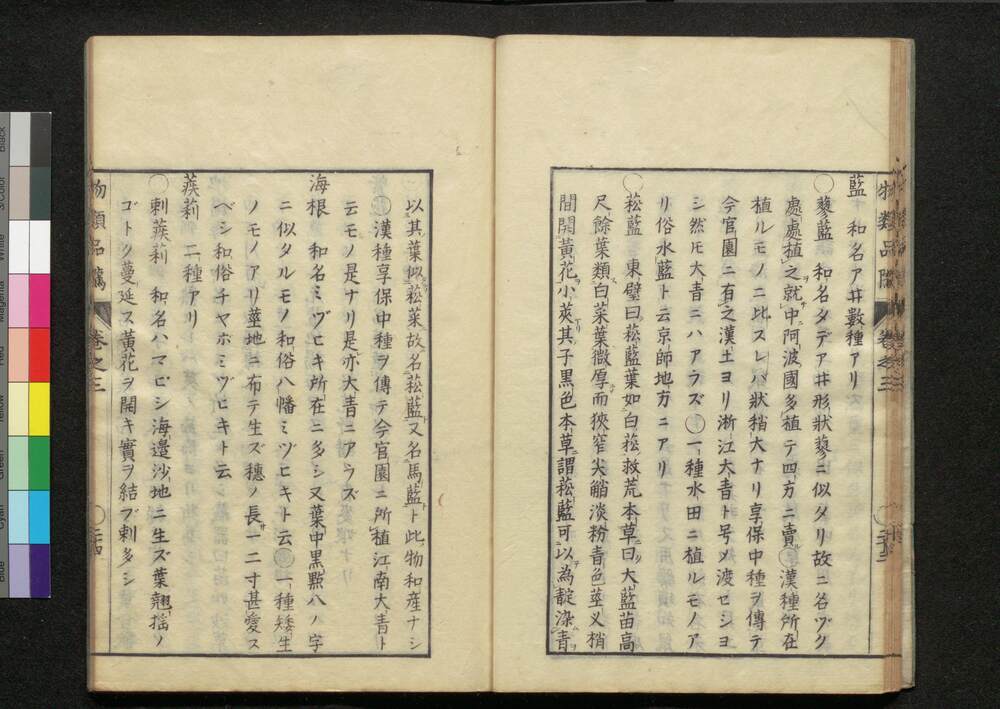 藍 和名アヰ數種アリ
○蓼藍 和名タデアヰ形狀蓼ニ似タリ故ニ名ヅク
處處植之就中阿波國多植テ四方ニ賣○漢種所在
植ルモノニ比スレバ狀稍大ナリ享保中種ヲ傳テ
今官園ニ有之漢土ヨリ浙江大青ト号メ渡セシヨ
シ然𪜈大青ニハアラズ○一種水田ニ植ルモノア
リ俗水藍ト云京師地方ニアリ
○菘藍 東璧曰菘藍葉如白菘救荒本草曰大藍苗高
尺餘葉類白菜葉微厚而狹窄尖䚡淡粉青色莖叉梢
間開黃花小莢其子黑色本草謂菘藍可以為靛染青
物類品隲 卷之三
以其葉似菘菜故名菘藍又名馬藍ト此物和產ナシ
○漢種享保中種ヲ傳テ今官園ニ所植江南大青ト
云モノ是ナリ是亦大青ニアラズ
海根 和名ミヅヒキ所在ニ多シ又葉中黑點八ノ字
ニ似タルモノ和俗八幡ミヅヒキト云○一種矮生
ノモノアリ莖地ニ布テ生ズ穗ノ長一二寸甚愛ス
ベシ和俗チヤホミヅヒキト云
蒺䔧 二種アリ
○刺蒺䔧 和名ハマビシ海邉沙地ニ生ズ葉翹揺ノ
ゴトク蔓延ス黃花ヲ開キ實ヲ結ブ刺多シ
物類品隲 卷之三
Black
3/Color
White
Magenta
Red
Yellow
Green
Cyan
Blue